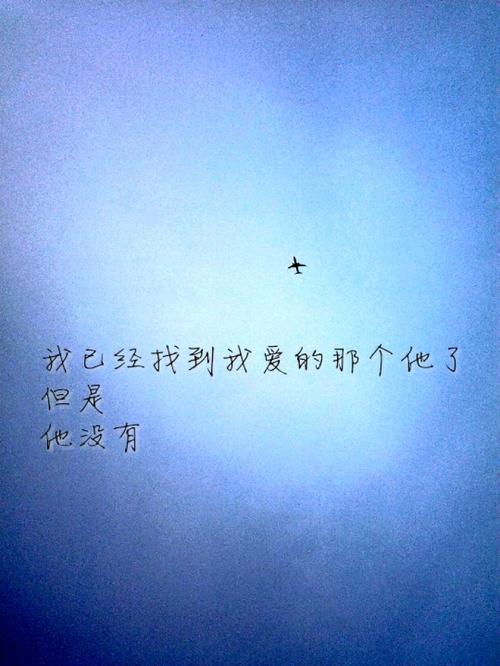 我已经找到我爱的那个他了
但是
他没有